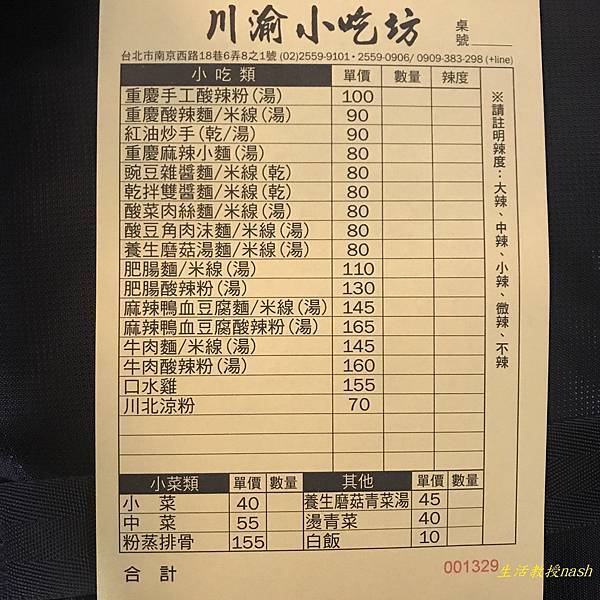 川渝小吃坊 桌號
台北市南京西路18巷6弄8之1號 (02)2559-9101・2559-0906/ 0909-383-298 (+line)
小吃類 單價 數量 辣度
重慶手工酸辣粉(湯) 100
重慶酸辣麵/米線(湯) 90
紅油炒手(乾/湯) 90
重慶麻辣小麵(湯) 80
豌豆雜醬麵/米線(乾) 80
乾拌雙醬麵/米線(乾) 80
酸菜肉絲麵/米線(湯) 80
酸豆角肉沫麵/米線(湯) 80
養生磨菇湯麵/米線(湯) 80
肥腸麵/米線(湯) 110
肥腸酸辣粉(湯) 130
麻辣鴨血豆腐麵/米線(湯) 145
麻辣鴨血豆腐酸辣粉(湯) 165
牛肉麵/米線(湯) 145
牛肉酸辣粉(湯) 160
口水雞 155
川北涼粉 70
※請註明辣度：大辣、中辣、小辣、微辣、不辣
小菜類 單價 數量 其他 單價 數量
小 菜 40 養生磨菇青菜湯 45
中 菜 55 燙青菜 40
粉蒸排骨 155 白飯 10
合 計 001329
生活教授nash